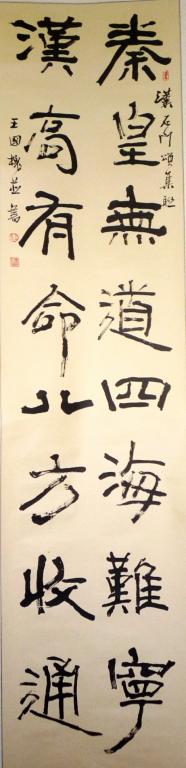 秦皇無道四海難寧
漢石門頌集聯
漢高有命八方收通
王國橋並書